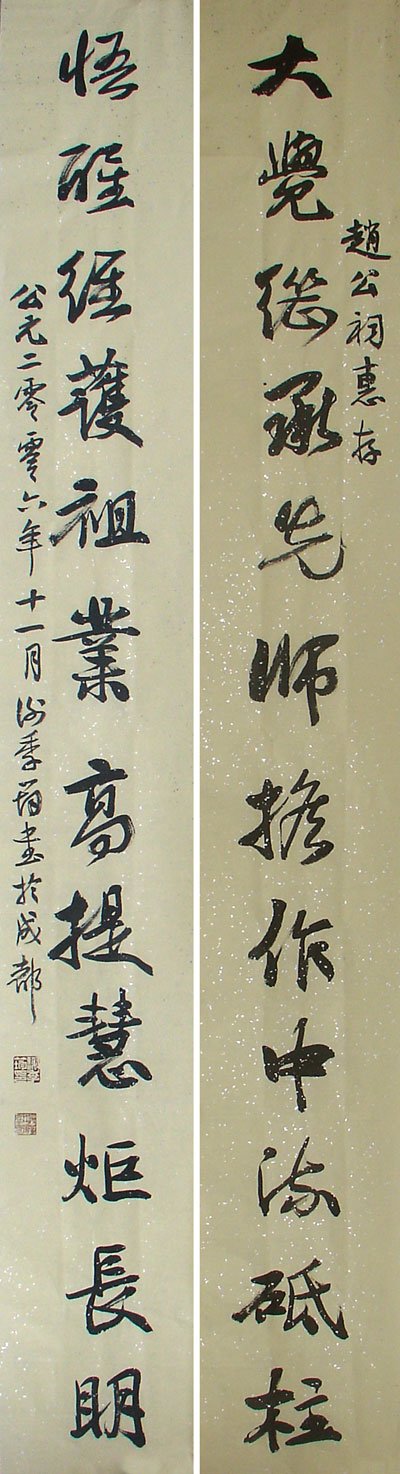 趙公祠惠存
大覺繼承先師擔作中流砥柱
悟醒維護祖業高提慧炬長明
公元二零零六年十一月謝季筠書於成都